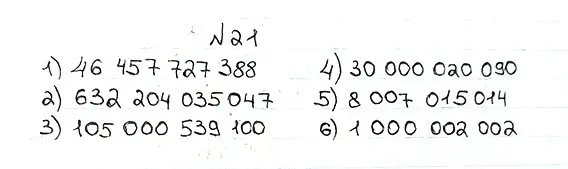 №21
1) 46 457 727 388
2) 632 204 035 047
3) 105 000 539 100
4) 30 000 020 090
5) 8 007 015 014
6) 1 000 002 002